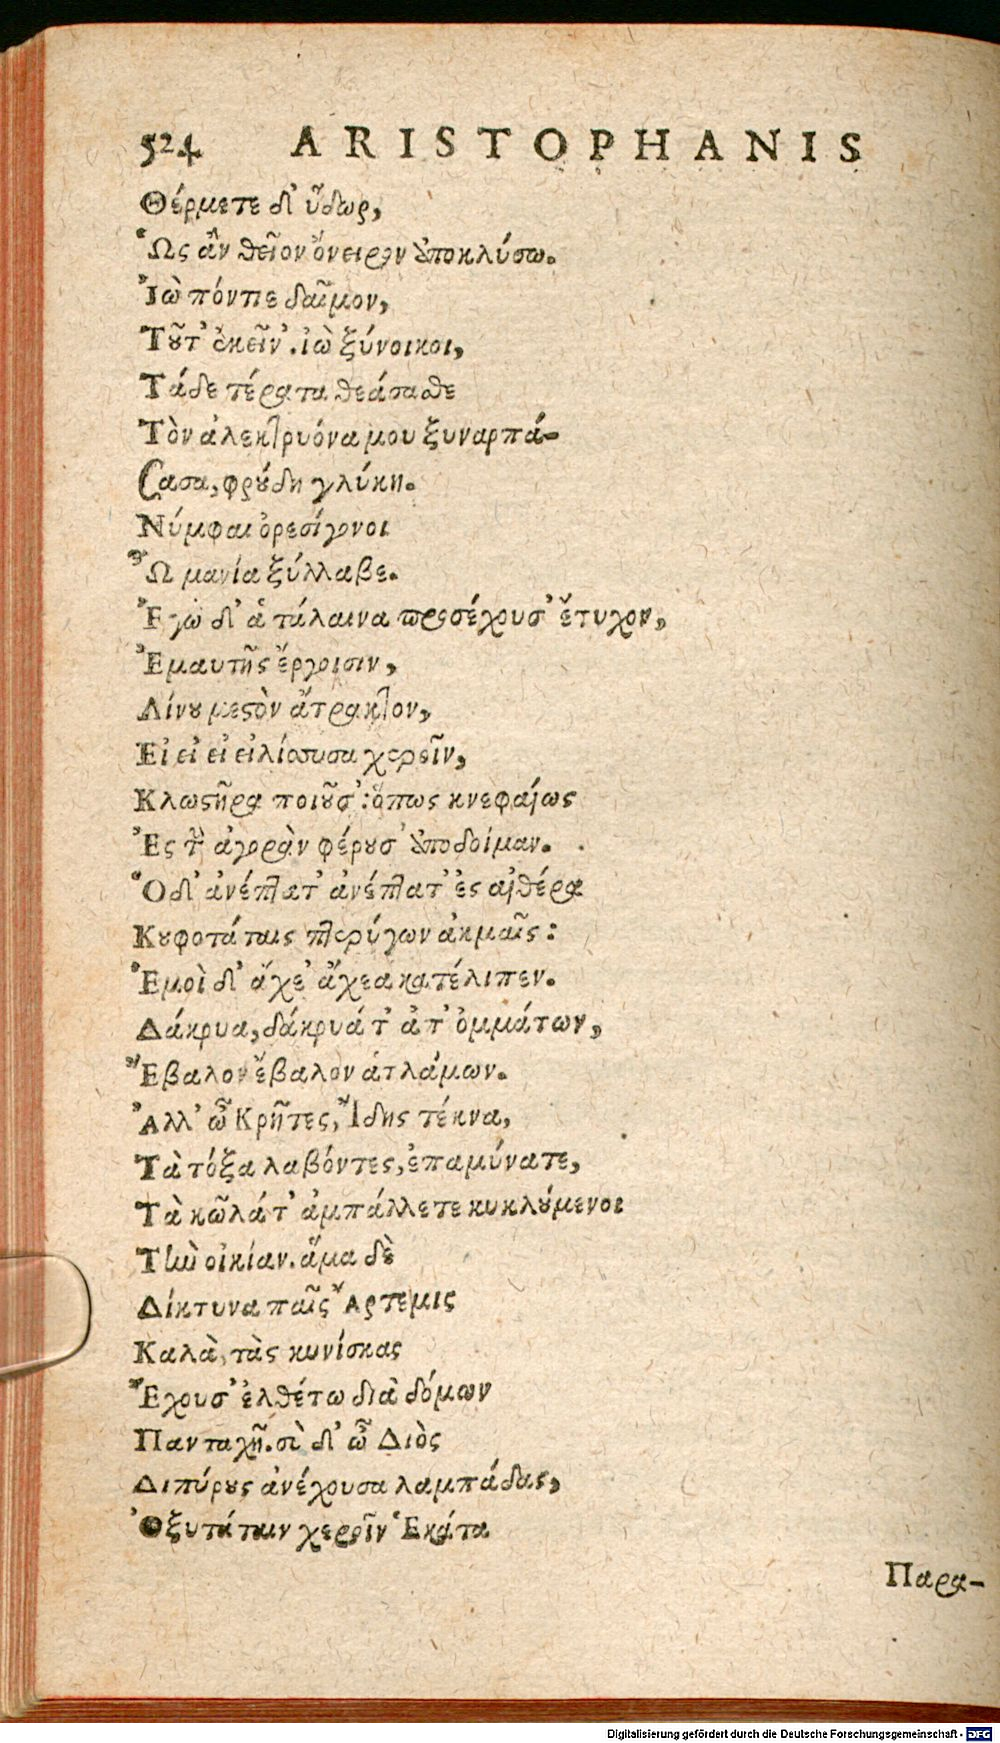 524 ARISTOPHANIS
Θέρμετε δ' ὕδωρ,
Ὡς ἂν θεῖον ὄνειρον ἀποκλύσω.
Ἰὼ πόντιε δαῖμον,
Τοῦτ' ἐκεῖν'. ἰὼ ξύνοικοι,
Τάδε τέρατα θεάσασθε
Τὸν ἀλεκτρυόνα μου ξυναρπά-
σασα, φρούδη γλύκη.
Νύμφαι ὀρεσίγονοι
Ὦ μανία ξύλλαβε.
Ἐγὼ δ' ἁ τάλαινα προσέχουσ' ἔτυχον,
Ἐμαυτῆς ἔργοισιν,
Λίνου μεστὸν ἄτρακτον,
Εἰ εἰ εἰ εἰλίσσουσα χεροῖν,
Κλωστῆρα ποιοῦσ': ὅπως κνεφαίως
Ἐς τὴν ἀγορὰν φέρουσ' ἀποδοίμαν.
Ὁ δ' ἀνέπτατ' ἀνέπτατ' ἐς αἰθέρα
Κουφοτάταις πτερύγων ἀκμαῖς:
Ἐμοὶ δ' ἄχε' ἄχεα κατέλιπεν.
Δάκρυα, δάκρυά τ' ἀπ' ὀμμάτων,
Ἔβαλον ἔβαλον ἁ τλάμων.
Ἀλλ' ὦ Κρῆτες, Ἴδης τέκνα,
Τὰ τόξα λαβόντες, ἐπαμύνατε,
Τὰ κῶλά τ' ἀμπάλλετε κυκλούμενοι
Τὴν οἰκίαν. ἅμα δὲ
Δίκτυνα παῖς Ἄρτεμις
Καλὰ, τὰς κυνίσκας
Ἔχουσ' ἐλθέτω διὰ δόμων
Πανταχῆ. σὺ δ' ὦ Διὸς
Διπύρους ἀνέχουσα λαμπάδας,
Ὀξυτάταιν χεροῖν Ἑκάτα
Παρα-
Digitalisierung gefördert durch die Deutsche Forschungsgemeinschaft - DFG